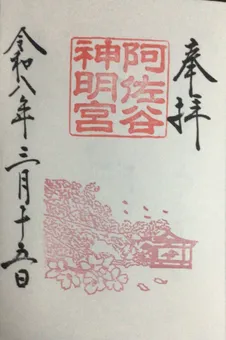 奉拝
阿佐谷
神明宮
令和八年三月十五日